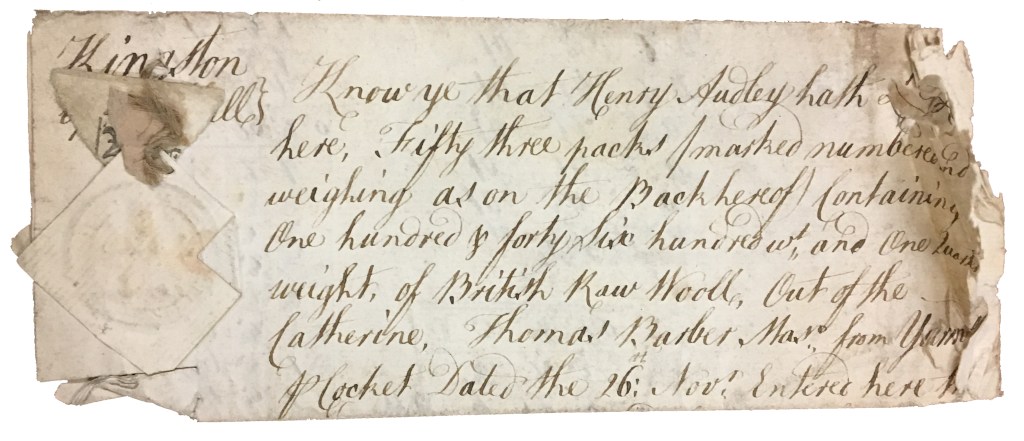 Kingston
Know ye that Henry Audley hath
here, Fifty three packs /marked numbered and
weighing as on the Back hereof/ Containing
One hundred & forty Six hundred wt, and One Quar
weight, of British Raw Wooll, Out of the
Catherine, Thomas Barber Masr, from Yarm
⅌ Cocket Dated the 26th: Novr. Entered here